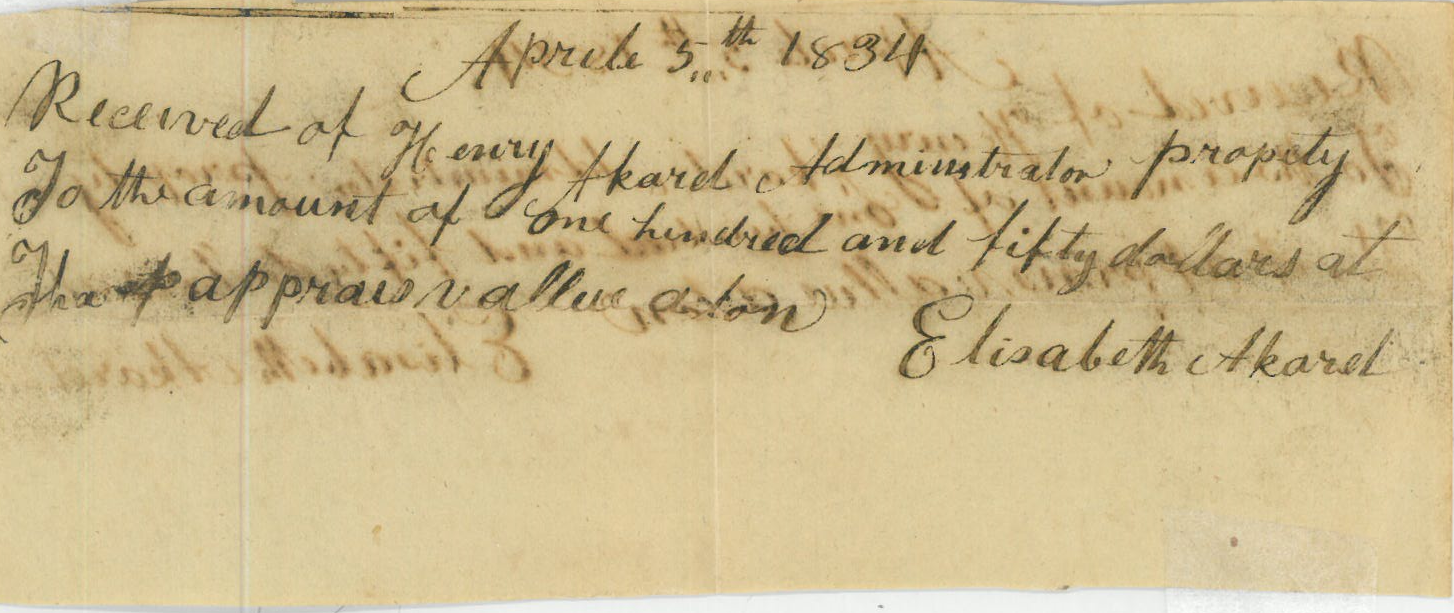 Aprile 5th 1834
Received of Henry Akard Adminstrator propety
To the amount of one hundred and fifty dollars at
The apprais vallue
Elisabeth Akard